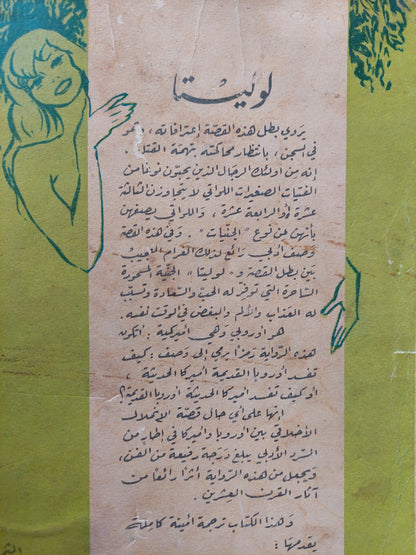 لوليتا
يروي بطل هذه القصة إعترافاته ، وهو
في السجن ، بانتظار محاكمته بتهمة القتل .
إنه من أولئك الرجال الذين يحبّون نوعاً من
الفتيات الصغيرات اللواتي لا يتجاوزن الثالثة
عشرة أو الرابعة عشرة ، واللواتي يصفهن
بأنهن من نوع " الجنّيات " . وفي هذه القصة
وصف أدبي رائع لذلك الغرام العجيب
بين بطل القصة و " لوليتا " الجنّية المسحورة
الساحرة التي توفّر له الحب والسعادة وتسبّب
له العذاب والألم والبغض في الوقت نفسه .
هو أوروبي وهي أميركية : أتكون
هذه الرواية رمزاً يرمي إلى وصف : كيف
تفسد أوروبا القديمة أميركا الحديثة ،
أو كيف تفسد أميركا الحديثة أوروبا القديمة ؟
إنها على أي حال قصة الإنحلال
الأخلاقي بين أوروبا وأميركا في إطار من
السرد الأدبي يبلغ درجة رفيعة من الفن ،
ويجعل من هذه الرواية أثراً رائعاً من
آثار القرن العشرين .
وهذا الكتاب ترجمة أمينة كاملة
يقدمها :